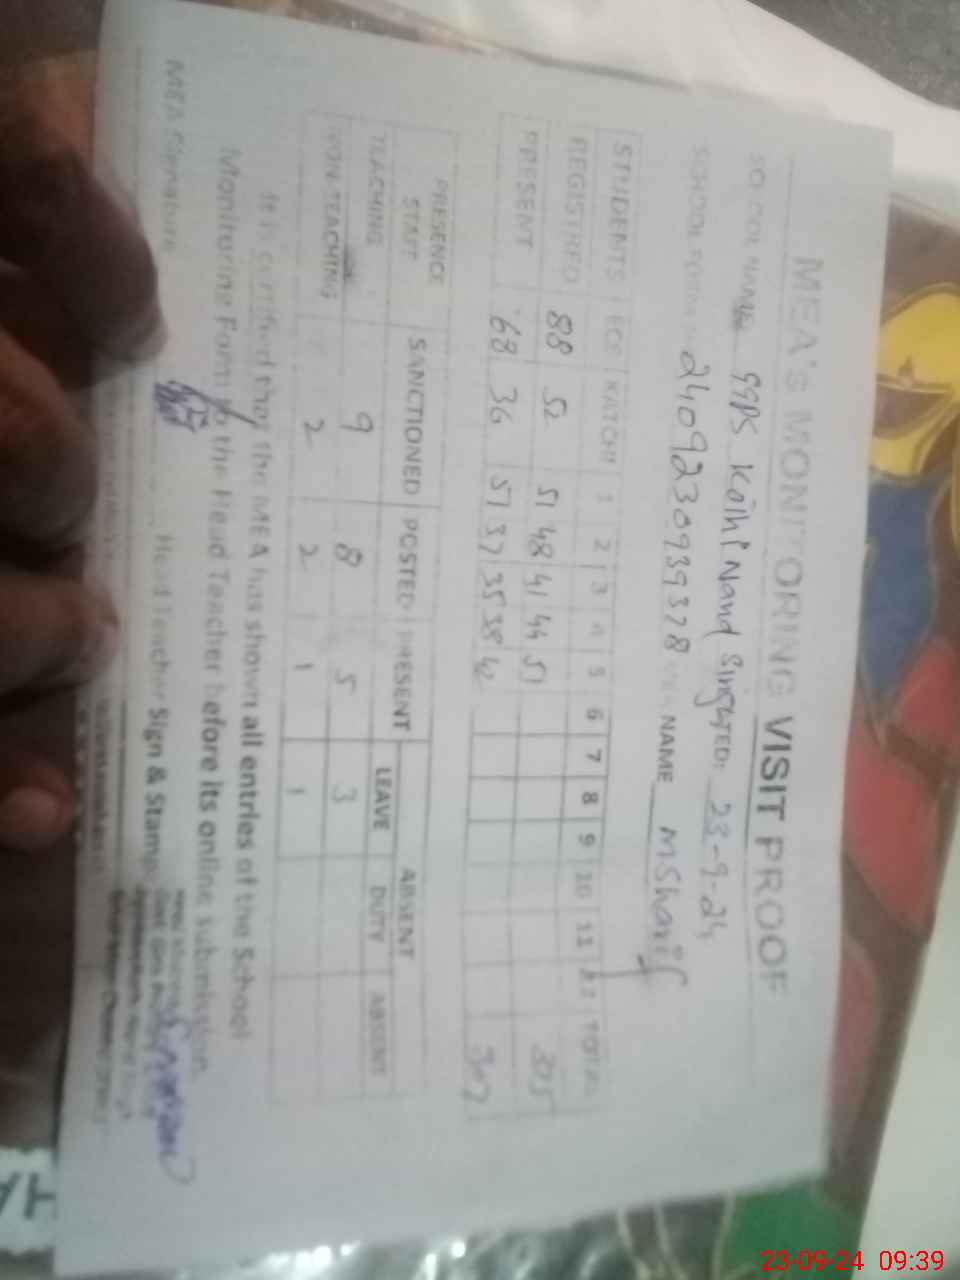 MEA's MONITORING VISIT PROOF
SCHOOL NAME GGPS Kolhi Nand Singh DATED: 23-9-24
SCHOOL FORM 240923093937 8 NAME M Sharif
STUDENTS ECE KATCHI 1 2 3 4 5 6 7 8 9 10 11 12 TOTAL
REGISTRED 88 52 51 48 41 44 51
PRESENT 68 36 51 37 35 38
PRESENCE STAFF SANCTIONED POSTED PRESENT ABSENT
LEAVE DUTY ABSENT
TEACHING 9 8 5 3
NON-TEACHING 2 2 1 1
It is certified that the MEA has shown all entries of the School
Monitoring Form to the Head Teacher before its online submission.
MEA Signature Head Teacher Sign & Stamp
23-09-24 09:39